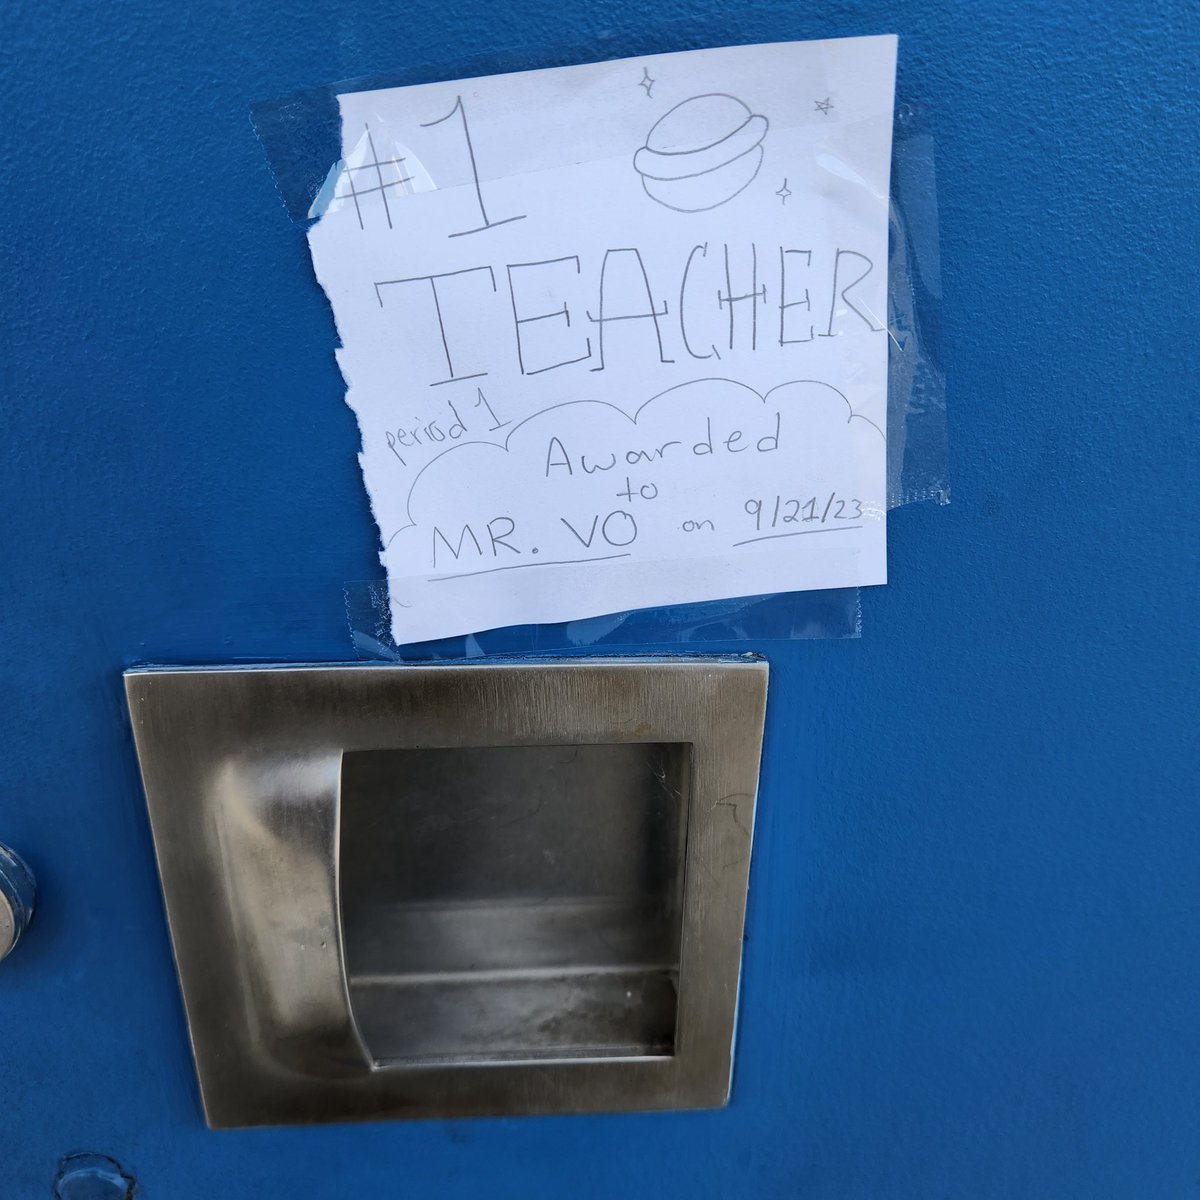 #1
TEACHER
period 1
Awarded
to
MR. VO on 9/21/23